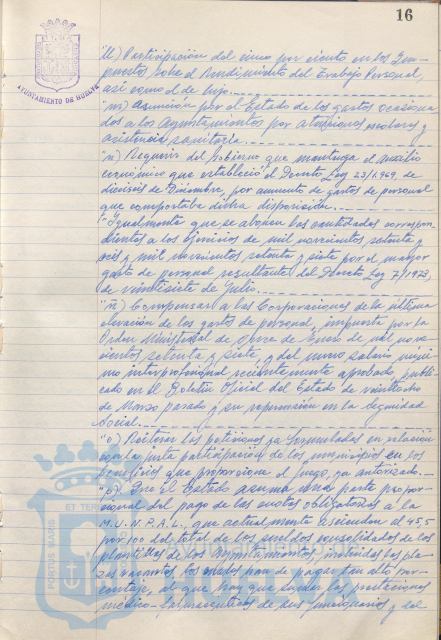 16
AYUNTAMIENTO DE HUELVA
"ll) Participación del cinco por ciento en los Im-
puestos, sobre el Rendimiento del Trabajo Personal,
así como el de lujo.
"m) Asunción por el Estado de los gastos ocasiona-
dos a los Ayuntamientos por atenciones escolares y
asistencia sanitaria.
"n) Requerir del Gobierno que mantenga el auxilio
económico que estableció el Decreto Ley 23/1.969, de
dieciseis de Diciembre, por aumento de gastos de personal
que comportaba dicha disposición.
"Igualmente que se abonen las cantidades correspon-
dientes a los ejercicios de mil novecientos setenta y
seis y mil novecientos setenta y siete por el mayor
gasto de personal resultante del Decreto Ley 7/1973,
de veintisiete de Julio.
"ñ) Compensar a las Corporaciones de la última
elevación de los gastos de personal, impuesta por la
Orden Ministerial de once de Enero de mil nove-
cientos setenta y siete, y del nuevo salario míni-
mo interprofesional recientemente aprobado, publi-
cado en el Boletín Oficial del Estado de veintiocho
de Marzo pasado y su repercusión en la Seguridad
Social.
"o) Reiterar las peticiones ya formuladas en relación
con la justa participación de los municipios en los
beneficios que proporcione el juego, ya autorizado.
"p) Que el Estado asuma una parte propor-
cional del pago de las cuotas obligatorias a la
M.U.N.P.A.L., que actualmente ascienden al 45,5
por 100 del total de los sueldos consolidados de las
plantillas de los Ayuntamientos, incluidas las pla-
zas vacantes, los cuales han de pagar tan alto por-
centaje, al que hay que sumar las prestaciones
médico-farmacéuticas de sus funcionarios y de
PORTUS MARIS ET TERRAE
HUELVA